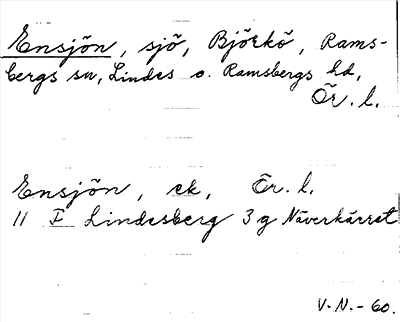 Ensjön, sjö, Björkö, Rams-
bergs sn, Lindes o. Ramsbergs hd,
Ör. l.
Ensjön, ek, Ör. l.
11 F Lindesberg 3 g Näverkärret
V.N.-60.